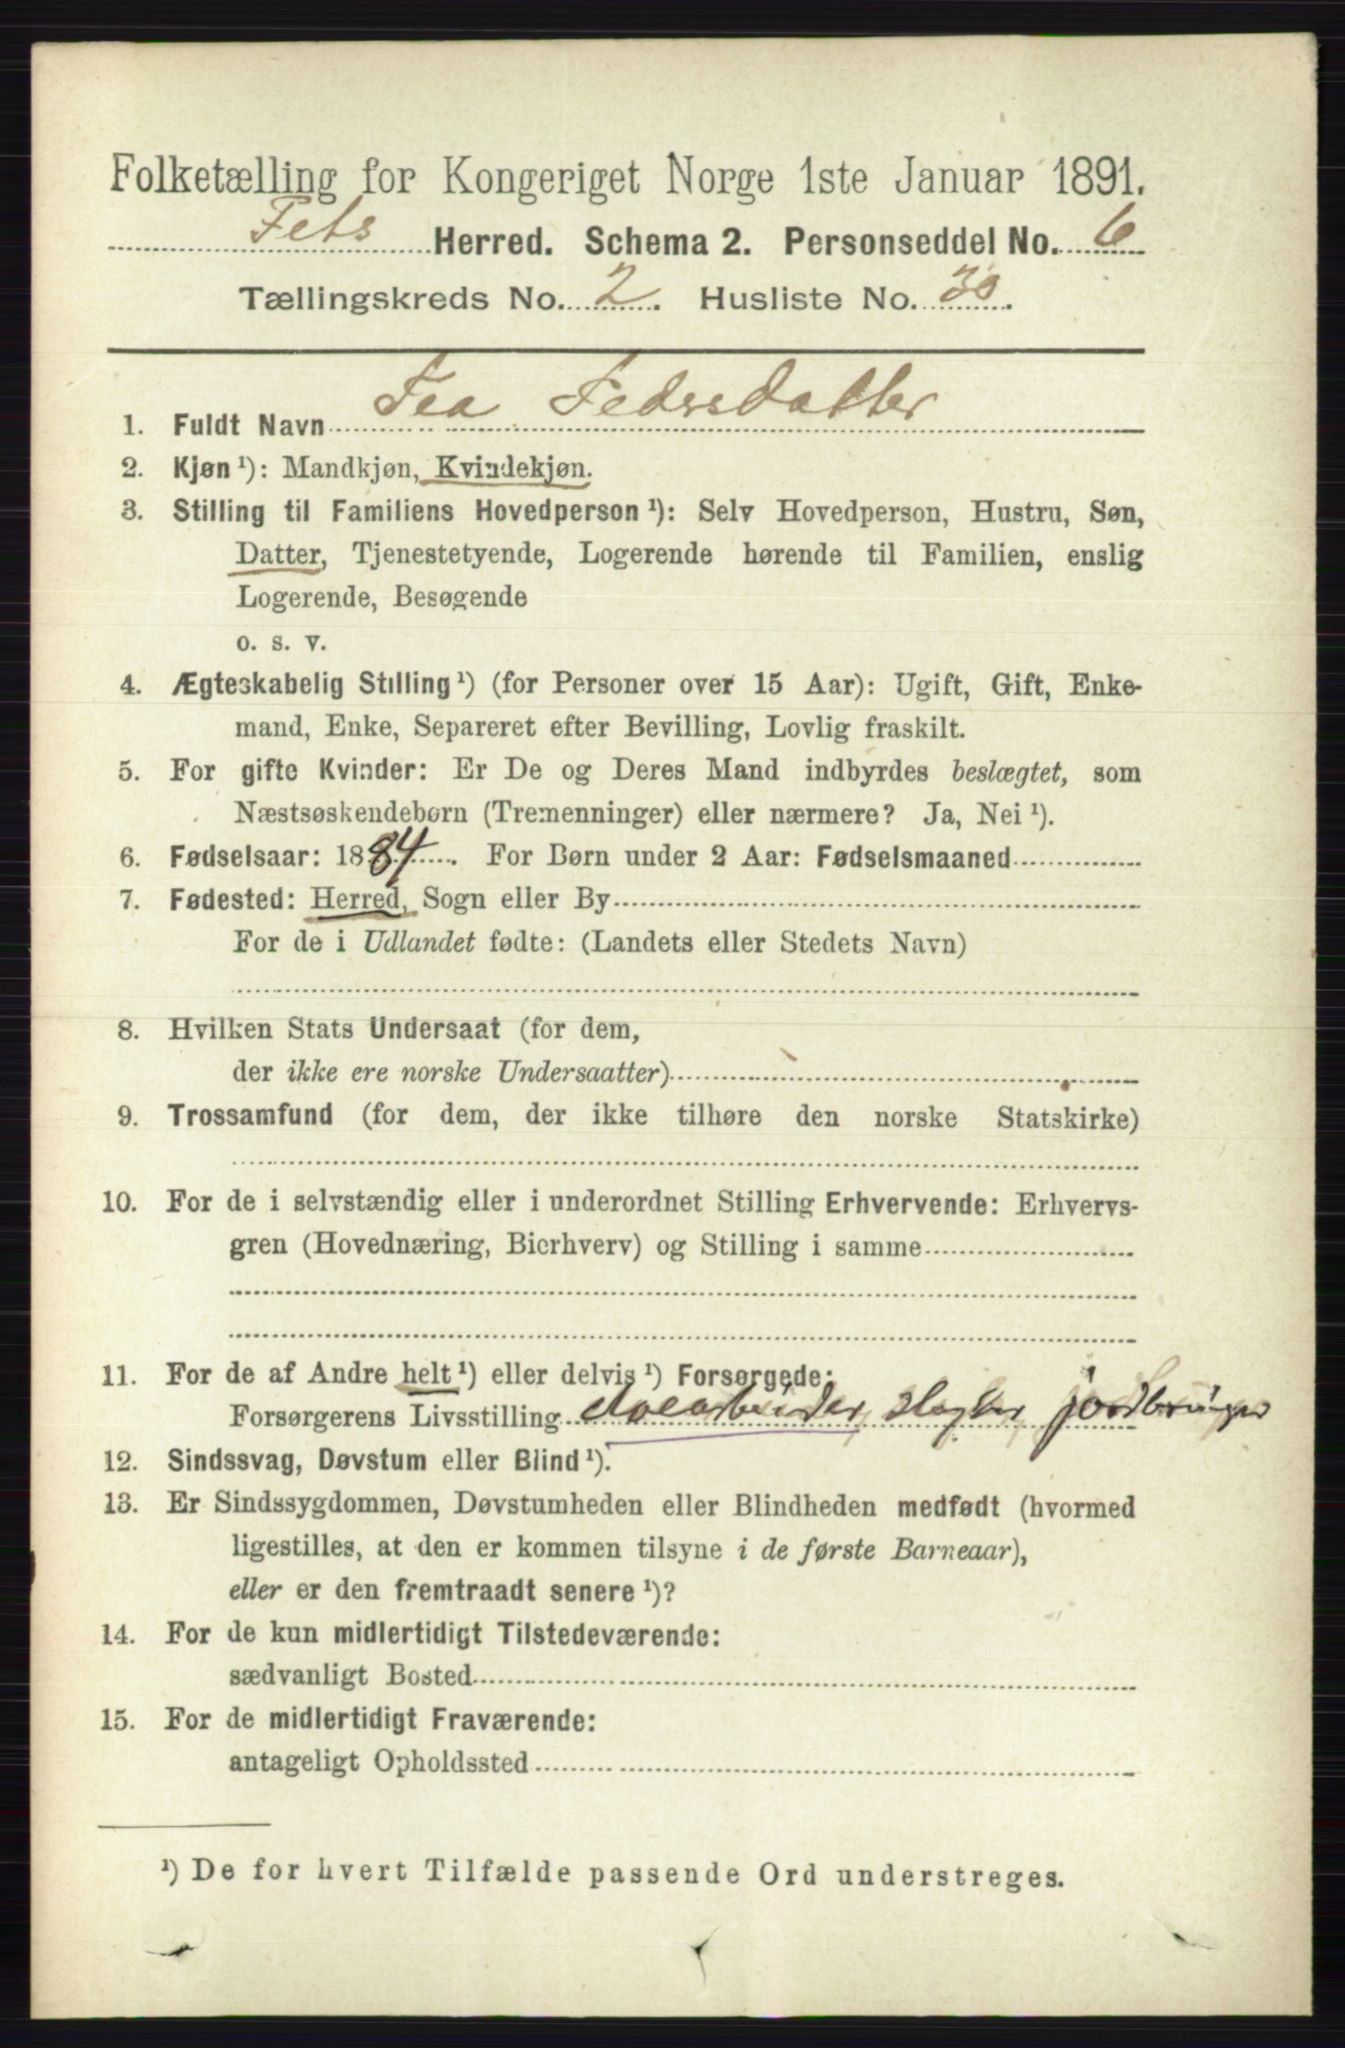 Folketælling for Kongeriget Norge 1ste Januar 1891.
Fets Herred. Schema 2. Personseddel No. 6
Tællingskreds No. 2. Husliste No. 30.
1. Fuldt Navn Tea Pedersdatter
2. Kjøn ¹): Mandkjøn, Kvindekjøn.
3. Stilling til Familiens Hovedperson ¹): Selv Hovedperson, Hustru, Søn,
Datter, Tjenestetyende, Logerende hørende til Familien, enslig
Logerende, Besøgende
o. s. v.
4. Ægteskabelig Stilling ¹) (for Personer over 15 Aar): Ugift, Gift, Enke-
mand, Enke, Separeret efter Bevilling, Lovlig fraskilt.
5. For gifte Kvinder: Er De og Deres Mand indbyrdes beslægtet, som
Næstsøskendebørn (Tremenninger) eller nærmere? Ja, Nei ¹).
6. Fødselsaar: 1884. For Børn under 2 Aar: Fødselsmaaned
7. Fødested: Herred, Sogn eller By
For de i Udlandet fødte: (Landets eller Stedets Navn)
8. Hvilken Stats Undersaat (for dem,
der ikke ere norske Undersaatter)
9. Trossamfund (for dem, der ikke tilhøre den norske Statskirke)
10. For de i selvstændig eller i underordnet Stilling Erhvervende: Erhvervs-
gren (Hovednæring, Bierhverv) og Stilling i samme
11. For de af Andre helt ¹) eller delvis ¹) Forsørgede:
Forsørgerens Livsstilling
12. Sindssvag, Døvstum eller Blind ¹).
13. Er Sindssygdommen, Døvstumheden eller Blindheden medfødt (hvormed
ligestilles, at den er kommen tilsyne i de første Barneaar),
eller er den fremtraadt senere ¹)?
14. For de kun midlertidigt Tilstedeværende:
sædvanligt Bosted
15. For de midlertidigt Fraværende:
antageligt Opholdssted
¹) De for hvert Tilfælde passende Ord understreges.